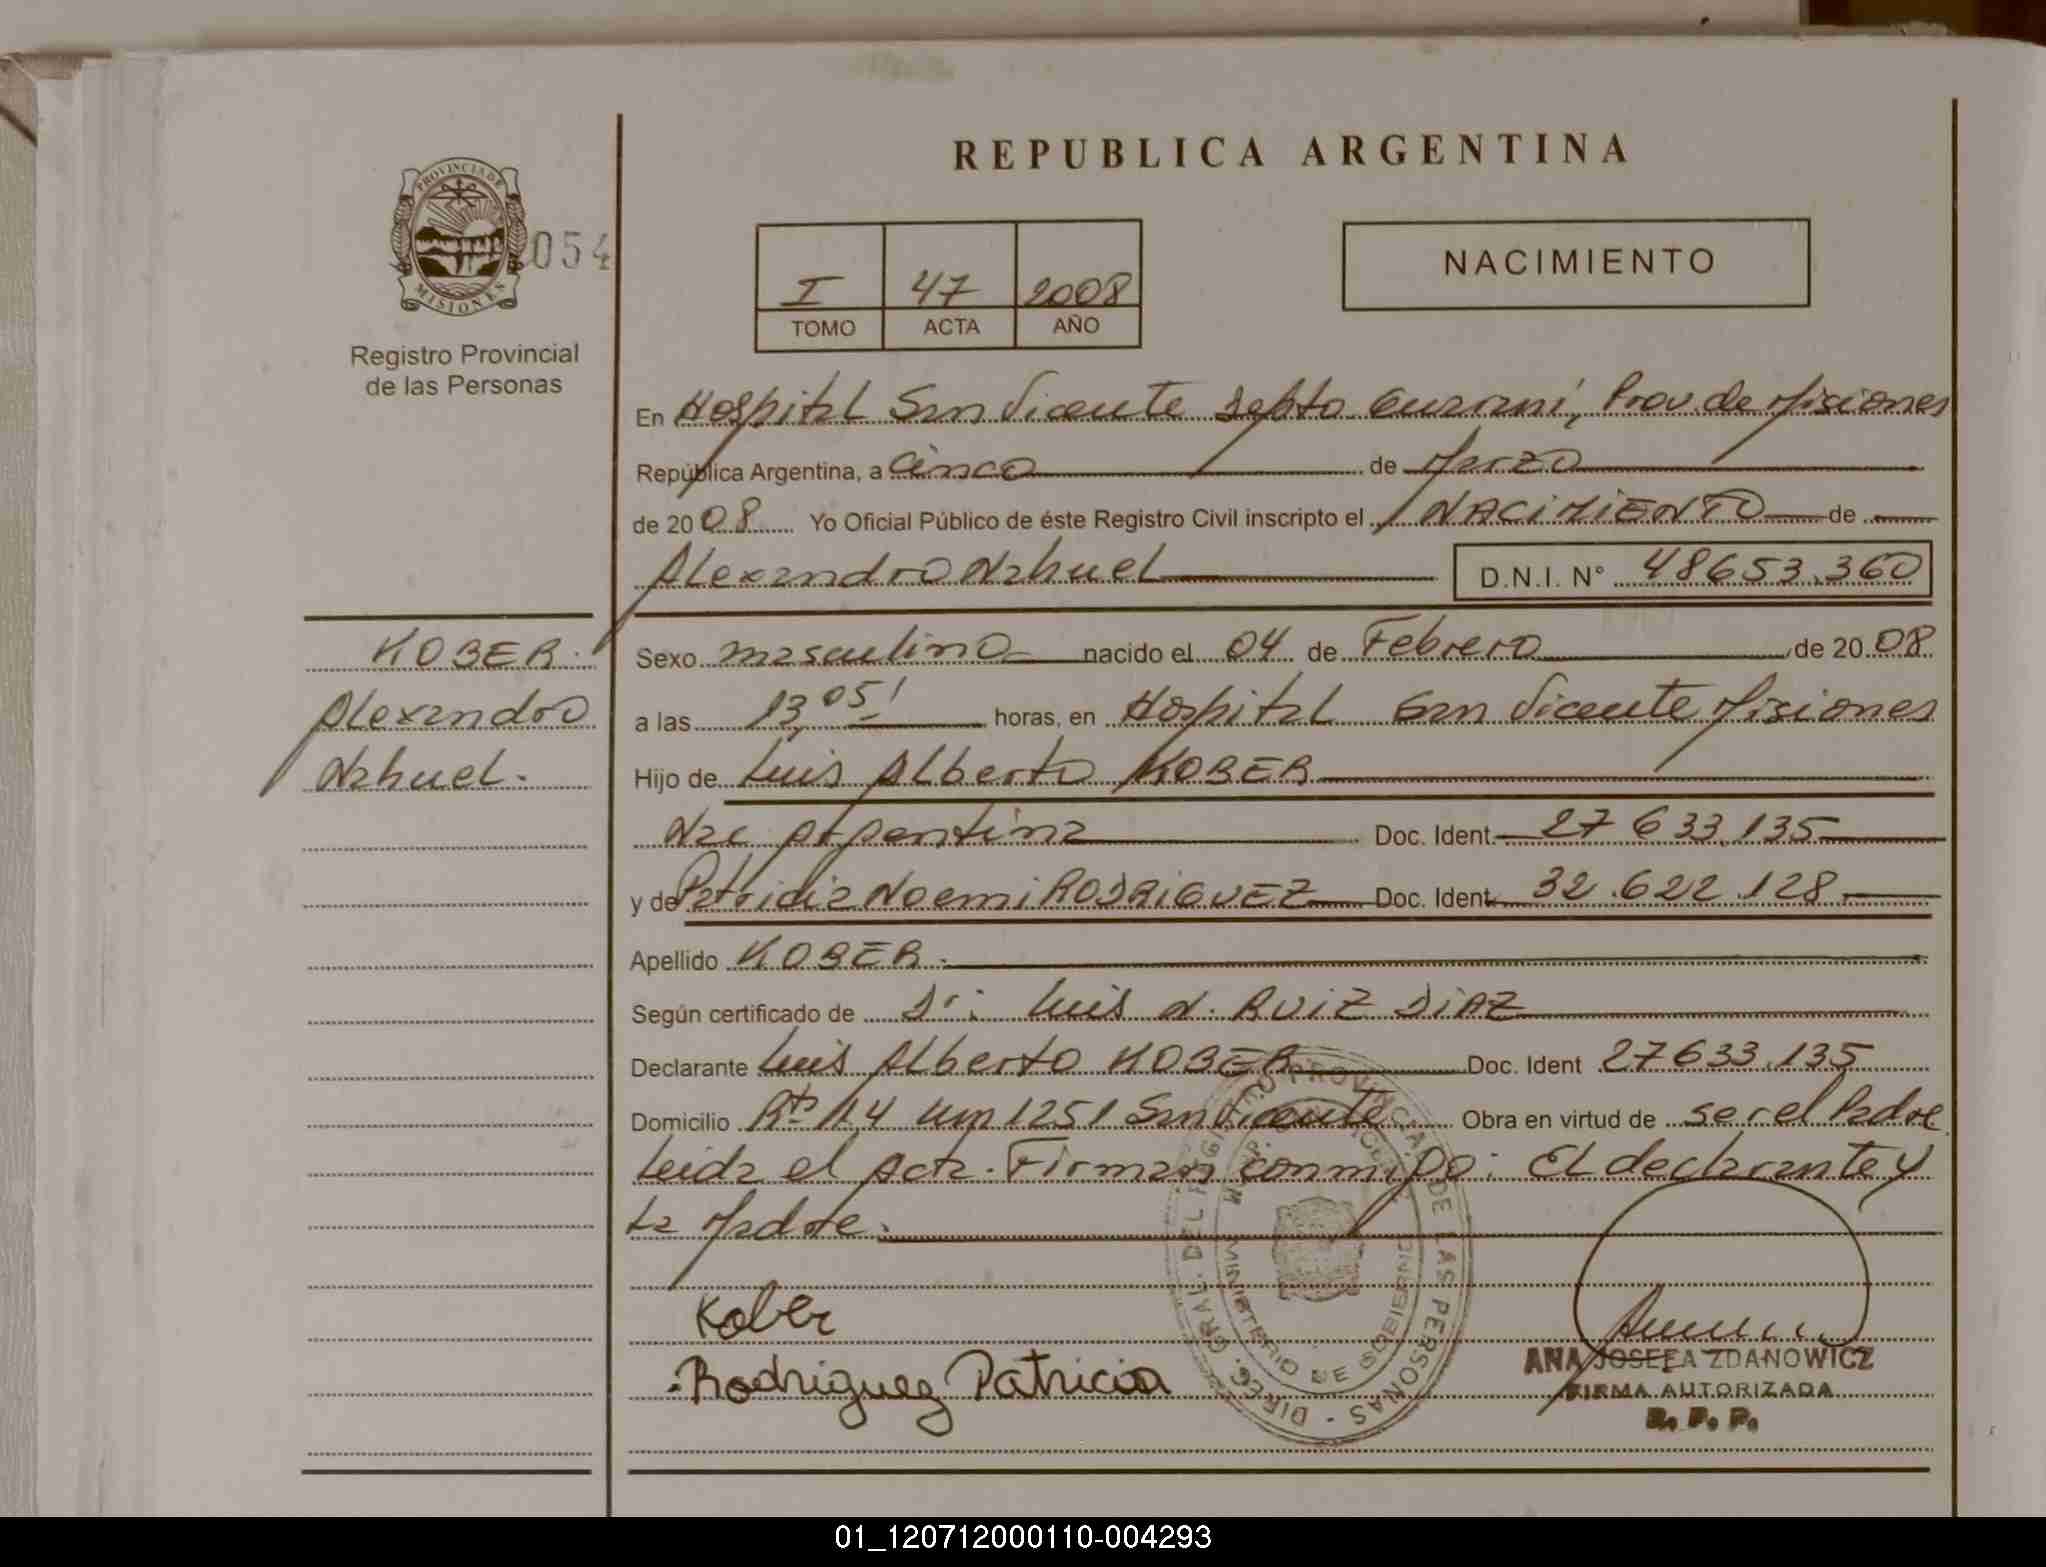 REPUBLICA ARGENTINA
PROVINCIA DE
MISIONES
054
Registro Provincial
de las Personas
I 47 2008
TOMO ACTA AÑO
NACIMIENTO
En Hospital San Vicente Depto Guarani, Prov de Misiones
República Argentina, a Cinco de Marzo
de 2008 Yo Oficial Público de éste Registro Civil inscripto el NACIMIENTO de
Alexandro Nahuel D.N.I. N° 48653.360
KOBER.
Alexandro
Nahuel.
Sexo masculino nacido el 04 de Febrero de 2008
a las 13,05' horas, en Hospital San Vicente Misiones
Hijo de Luis Alberto KOBER
Nac Argentina Doc. Ident. 27 633.135
y de Patricia Noemi RODRIGUEZ Doc. Ident. 32.622.128
Apellido KOBER.
Según certificado de Dr: Luis N. RUIZ DIAZ
Declarante Luis Alberto KOBER Doc. Ident 27633.135
Domicilio Rta 14 Km 1251 San Vicente Obra en virtud de ser el Padre
Leida el Acta. Firman conmigo: El declarante y
La Madre.
Kober
Rodriguez Patricia
DIREC. GRAL. DEL REGISTRO PROVINCIAL DE LAS PERSONAS
MINISTERIO DE GOBIERNO
ANA JOSEFA ZDANOWICZ
FIRMA AUTORIZADA
R. P. P.
01_120712000110-004293